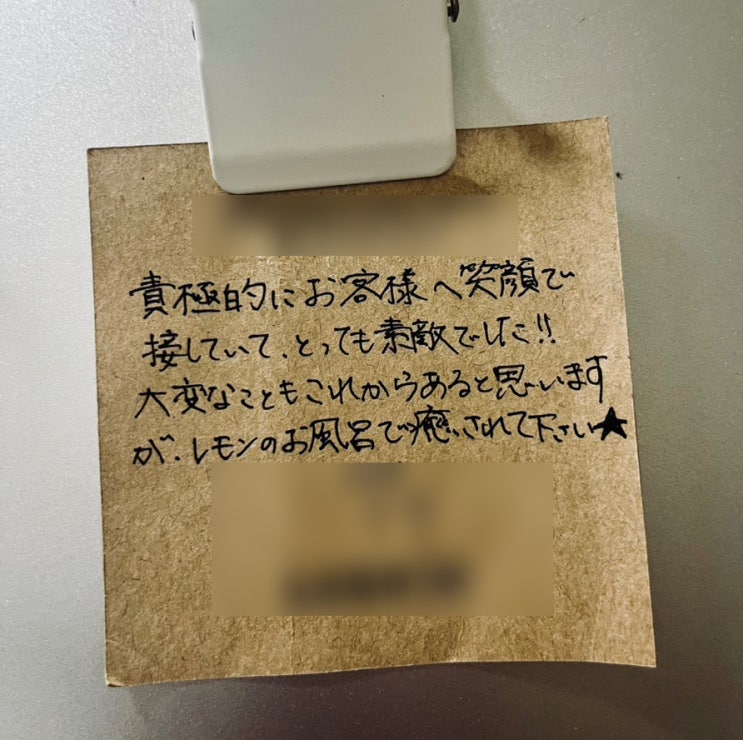 責極的にお客様へ笑顔で
接していて、とっても素敵でした!!
大変なこともこれからあると思います
が、レモンのお風呂で癒されて下さい★